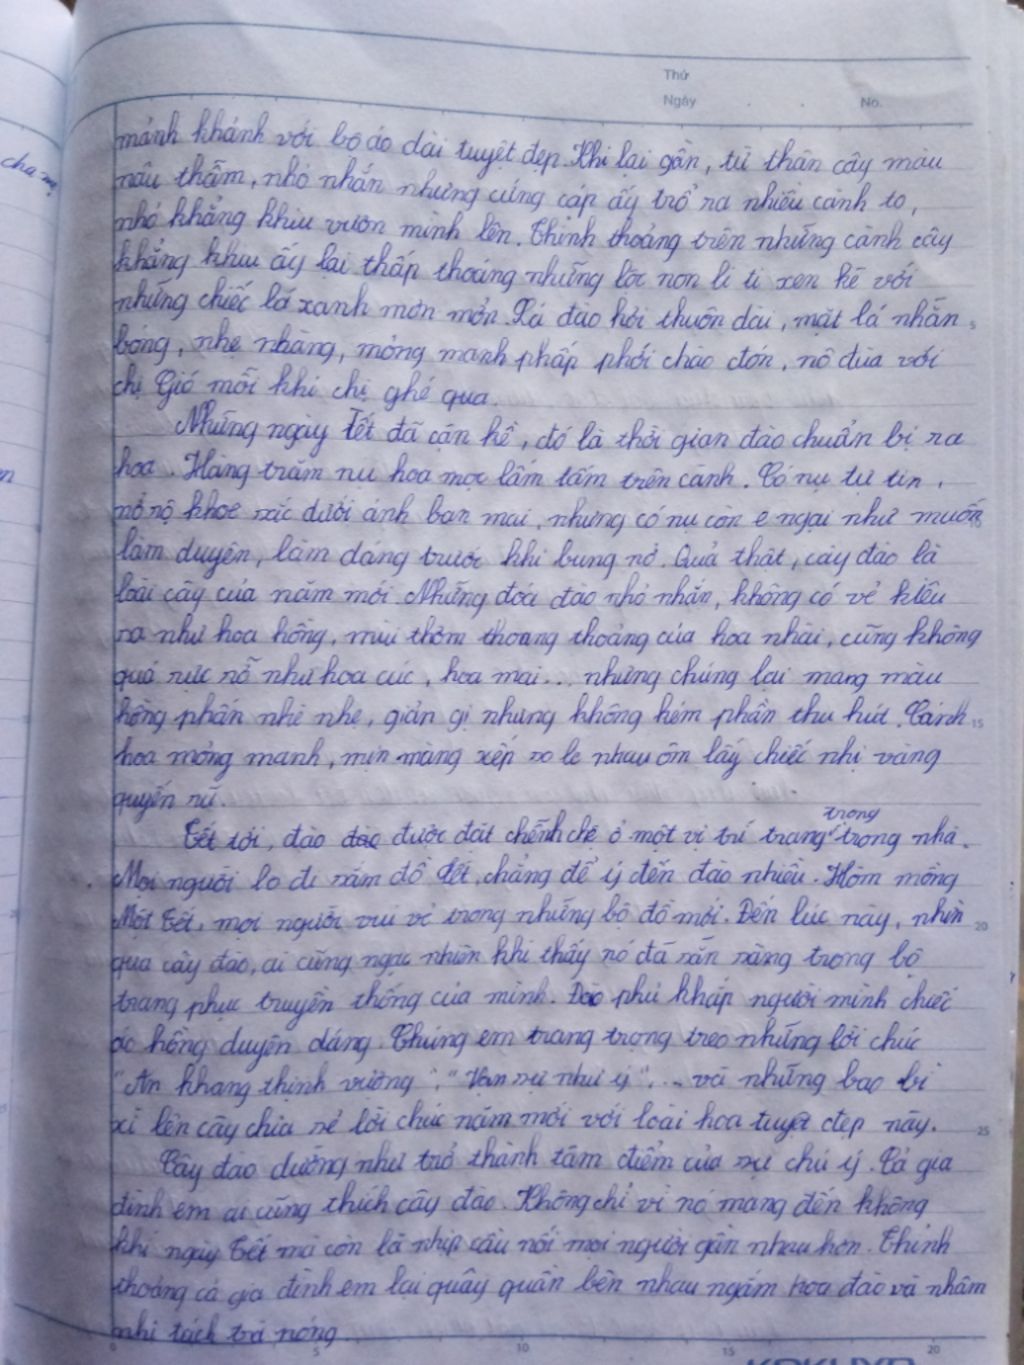 Thứ
Ngày . . No.
cha mẹ
mảnh khảnh với bộ áo dài tuyệt đẹp. Khi lại gần, từ thân cây màu
nâu thẫm, nhỏ nhắn nhưng cứng cáp ấy trổ ra nhiều cành to,
nhỏ khẳng khiu vươn mình lên. Thỉnh thoảng trên những cành cây
khẳng khiu ấy lại thấp thoáng những lộc non li ti xen kẽ với
những chiếc lá xanh mơn mởn. Lá đào hơi thuôn dài, mặt lá nhẵn
bóng, nhẹ nhàng, mỏng manh phấp phới chào đón, nô đùa với
chị Gió mỗi khi chị ghé qua.
Những ngày Tết đã cận kề, đó là thời gian đào chuẩn bị ra
hoa. Hàng trăm nụ hoa mọc lấm tấm trên cành. Có nụ tự tin,
nở rộ khoe sắc dưới ánh ban mai, nhưng có nụ còn e ngại như muốn
làm duyên, làm dáng trước khi bung nở. Quả thật, cây đào là
loài cây của năm mới. Những đoá đào nhỏ nhắn, không có vẻ kiêu
sa như hoa hồng, mùi thơm thoang thoảng của hoa nhài, cũng không
quá rực rỡ như hoa cúc, hoa mai... nhưng chúng lại mang màu
hồng phấn nhè nhẹ, giản gị nhưng không kém phần thu hút. Cánh
hoa mỏng manh, mịn màng xếp so le nhau ôm lấy chiếc nhị vàng
quyến rũ.
Tết tới, đào được đặt chễnh chệ ở một vị trí trang trọng trong nhà.
Mọi người lo đi sắm đồ Tết, chẳng để ý đến đào nhiều. Hôm mồng
Một Tết, mọi người vui vẻ trong những bộ đồ mới. Đến lúc này, nhìn
qua cây đào, ai cũng ngạc nhiên khi thấy nó đã sẵn sàng trong bộ
trang phục truyền thống của mình. Đào phủ khắp người mình chiếc
áo hồng duyên dáng. Chúng em trang trọng treo những lời chúc
"An khang thịnh vượng", "Vạn sự như ý",... và những bao lì
xì lên cây chia sẻ lời chúc năm mới với loài hoa tuyệt đẹp này.
Cây đào dường như trở thành tâm điểm của sự chú ý. Cả gia
đình em ai cũng thích cây đào. Không chỉ vì nó mang đến không
khí ngày Tết mà còn là nhịp cầu nối mọi người gần nhau hơn. Thỉnh
thoảng cả gia đình em lại quây quần bên nhau ngắm hoa đào và nhâm
nhi tách trà nóng.
5
10
15
20
25
0 5 10 15 20